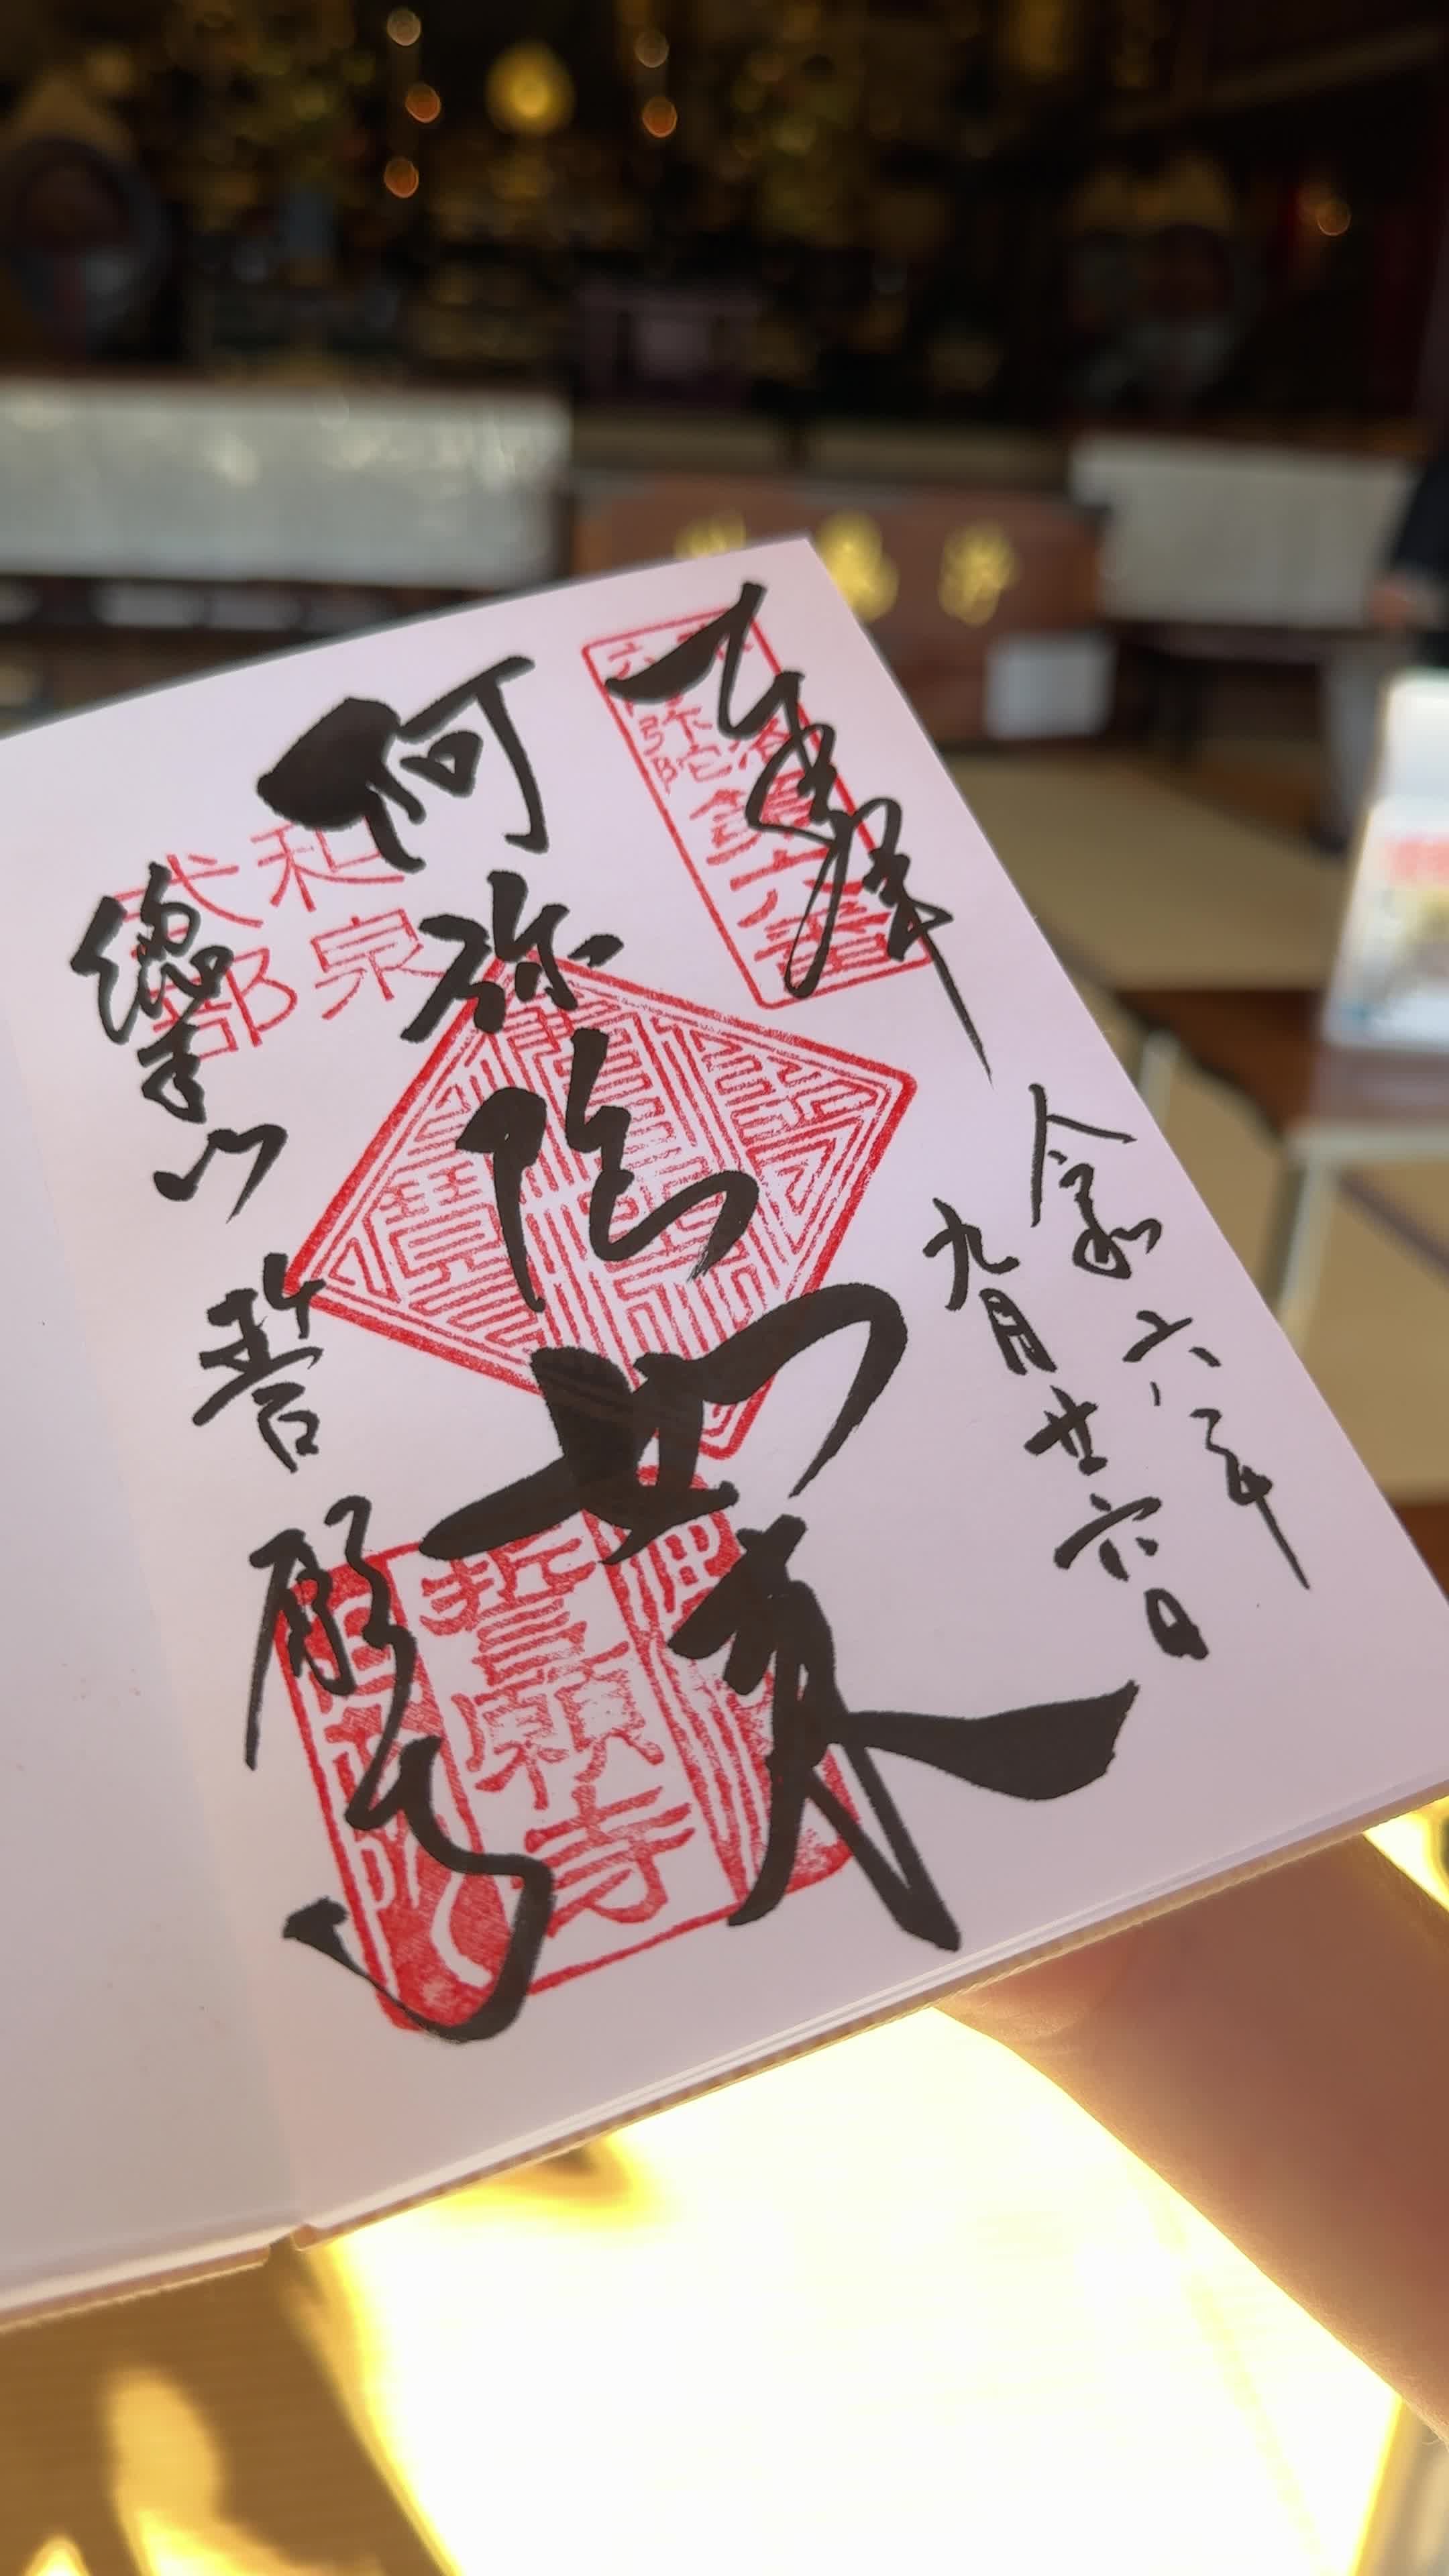 奉拝
令和六年
九月廿六日
阿弥陀如来
總本山 誓願寺
和泉
式部
誓願寺